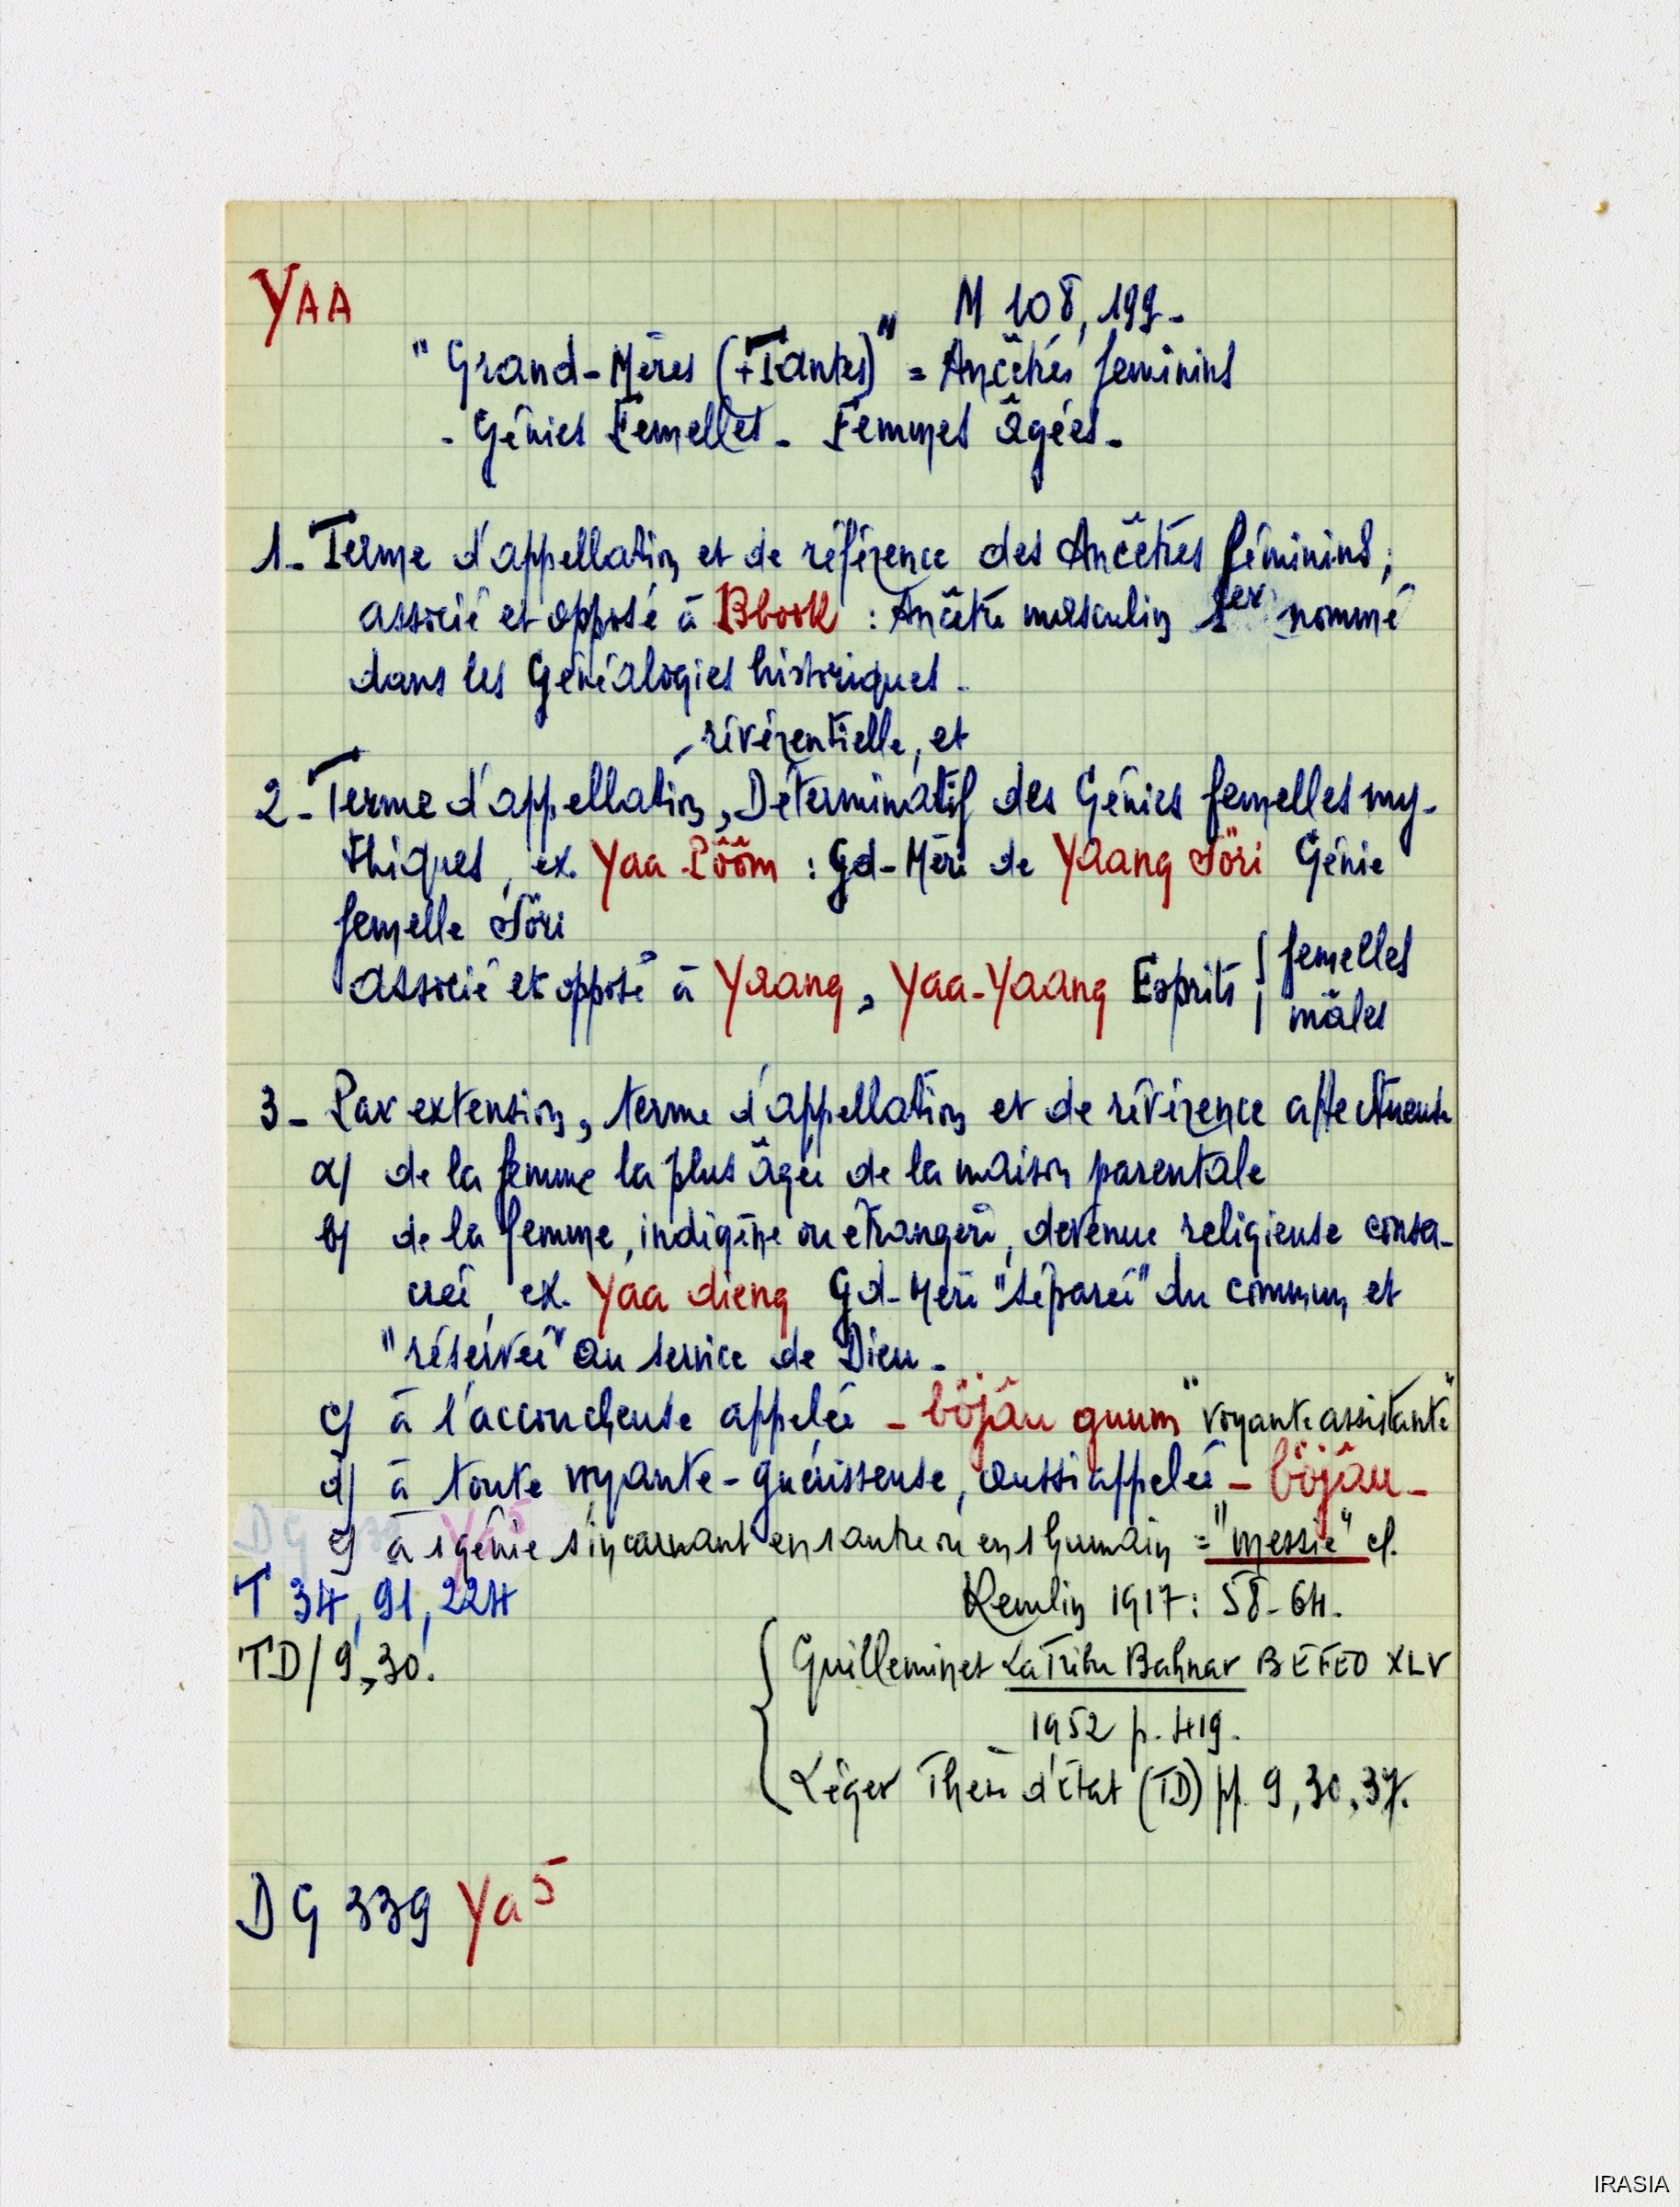 YAA
M 108, 199-
"Grand-Mères (+Tantes)" = Ancêtres féminins
- Génies Femelles - Femmes âgées -
1- Terme d'appellation et de référence des Ancêtres féminins;
associé et opposé à Bbook : Ancêtre masculin 1er nommé
dans les Généalogies historiques -
révérentielle, et
2- Terme d'appellation, Déterminatif des Génies femelles my-
thiques, ex. Yaa Pôôm : Gd-Mère de Yaang Söri Génie
femelle Söri
associé et opposé à Yaang, Yaa-Yaang Esprits { femelles
mâles
3- Par extension, terme d'appellation et de révérence affectueuse
a/ de la femme la plus âgée de la maison parentale
b/ de la femme, indigène ou étrangère, devenue religieuse consa-
crée, ex. Yaa dieng Gd-Mère "séparée" du commun, et
"réservée" au service de Dieu -
c/ à l'accoucheuse appelée - böjâu guum "voyante assistante"
d/ à toute voyante-guérisseuse, aussi appelée - böjâu -
e/ à 1 génie s'incarnant en 1 autre ou en 1 humain = "messie" cf.
T 34, 91, 224
Kemlin 1917: 58-64.
TD/9,30.
Guilleminet La Tribu Bahnar BEFEO XLV
1952 p. 419.
Léger Thèse d'état (TD) pp. 9, 30, 37.
DG 339 Ya5
IRASIA